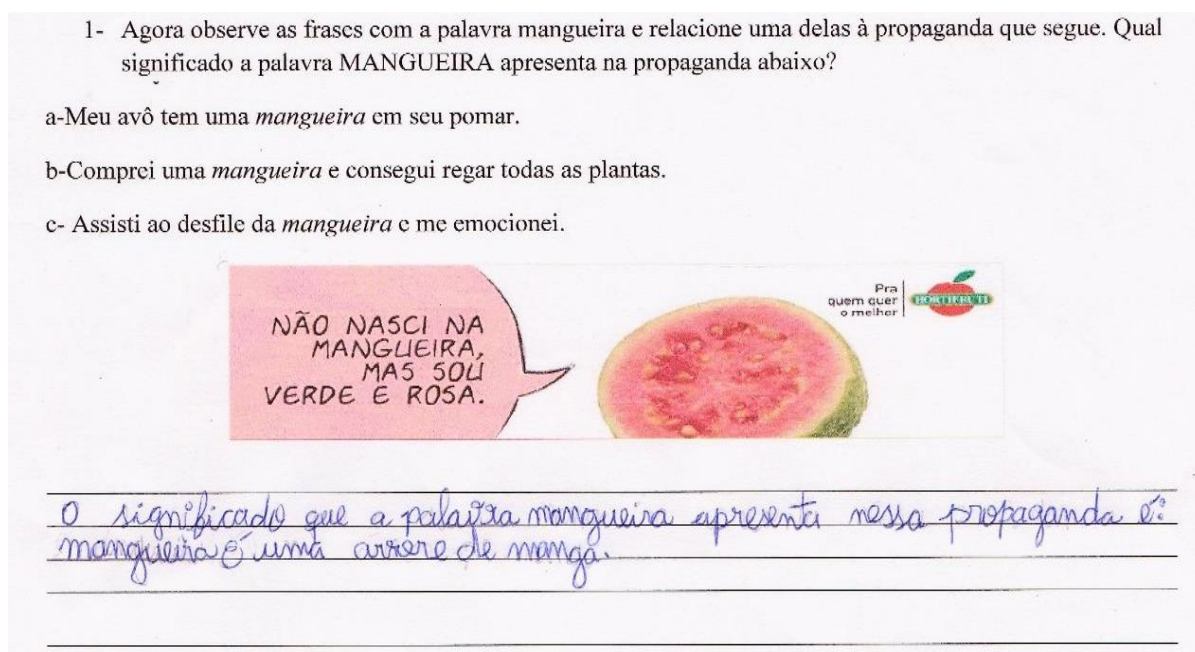 1- Agora observe as frases com a palavra mangueira e relacione uma delas à propaganda que segue. Qual
significado a palavra MANGUEIRA apresenta na propaganda abaixo?
a-Meu avô tem uma mangueira em seu pomar.
b-Comprei uma mangueira e consegui regar todas as plantas.
c- Assisti ao desfile da mangueira e me emocionei.
NÃO NASCI NA
MANGUEIRA,
MAS SOU
VERDE E ROSA.
Pra
quem quer
o melhor
HORTIFRUTI
O significado que a palavra mangueira apresenta nessa propaganda é:
mangueira é uma arrore de manga.